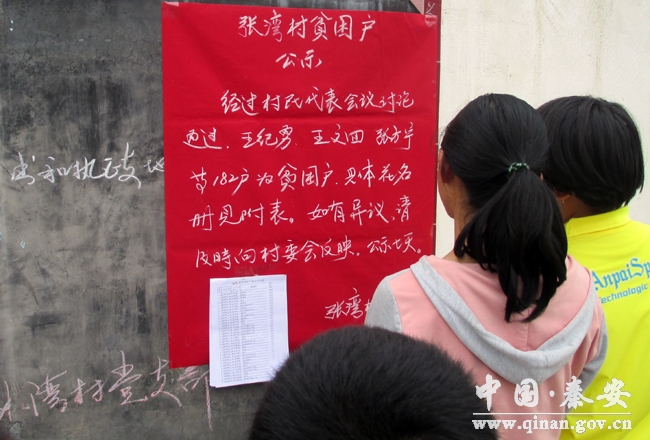 张湾村贫困户
公示
经过村民代表会议讨论
通过，王纪勇、王文四、张方平
等182户为贫困户，具体花名
册见附表。如有异议，请
及時向村委会反映。公示七天。
张湾村
湾村党支部
AnpaiSp
Technologic
中国·秦安
www.qinan.gov.cn